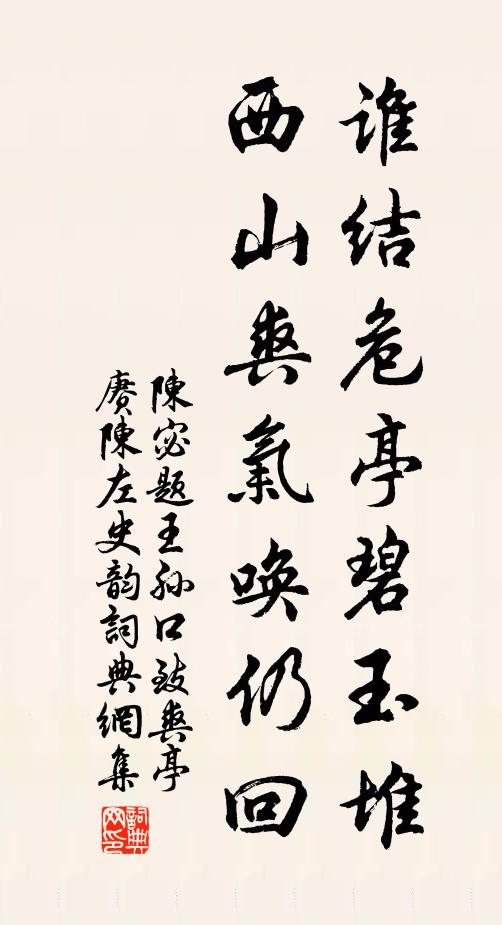 谁结危亭碧玉堆
西山爽氣唤仍回
陳宓题王孙口致爽亭
賡陳左史韵詞典網集
詞典網印